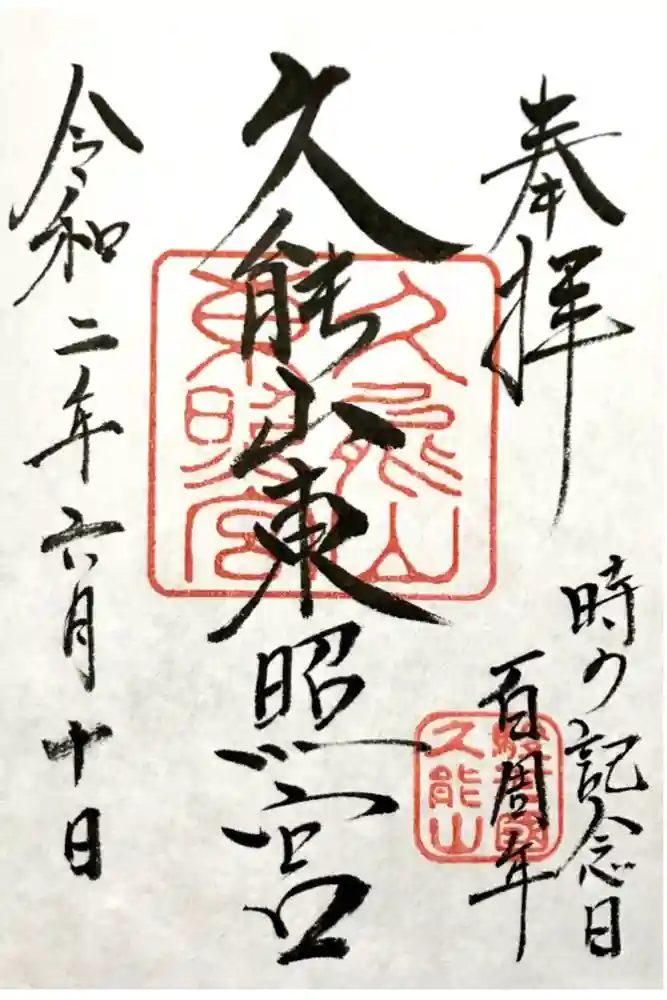 奉拝
時の記念日
百周年
久能山東照宮
令和二年六月十日
久能山
東照宮
駿河國
久能山